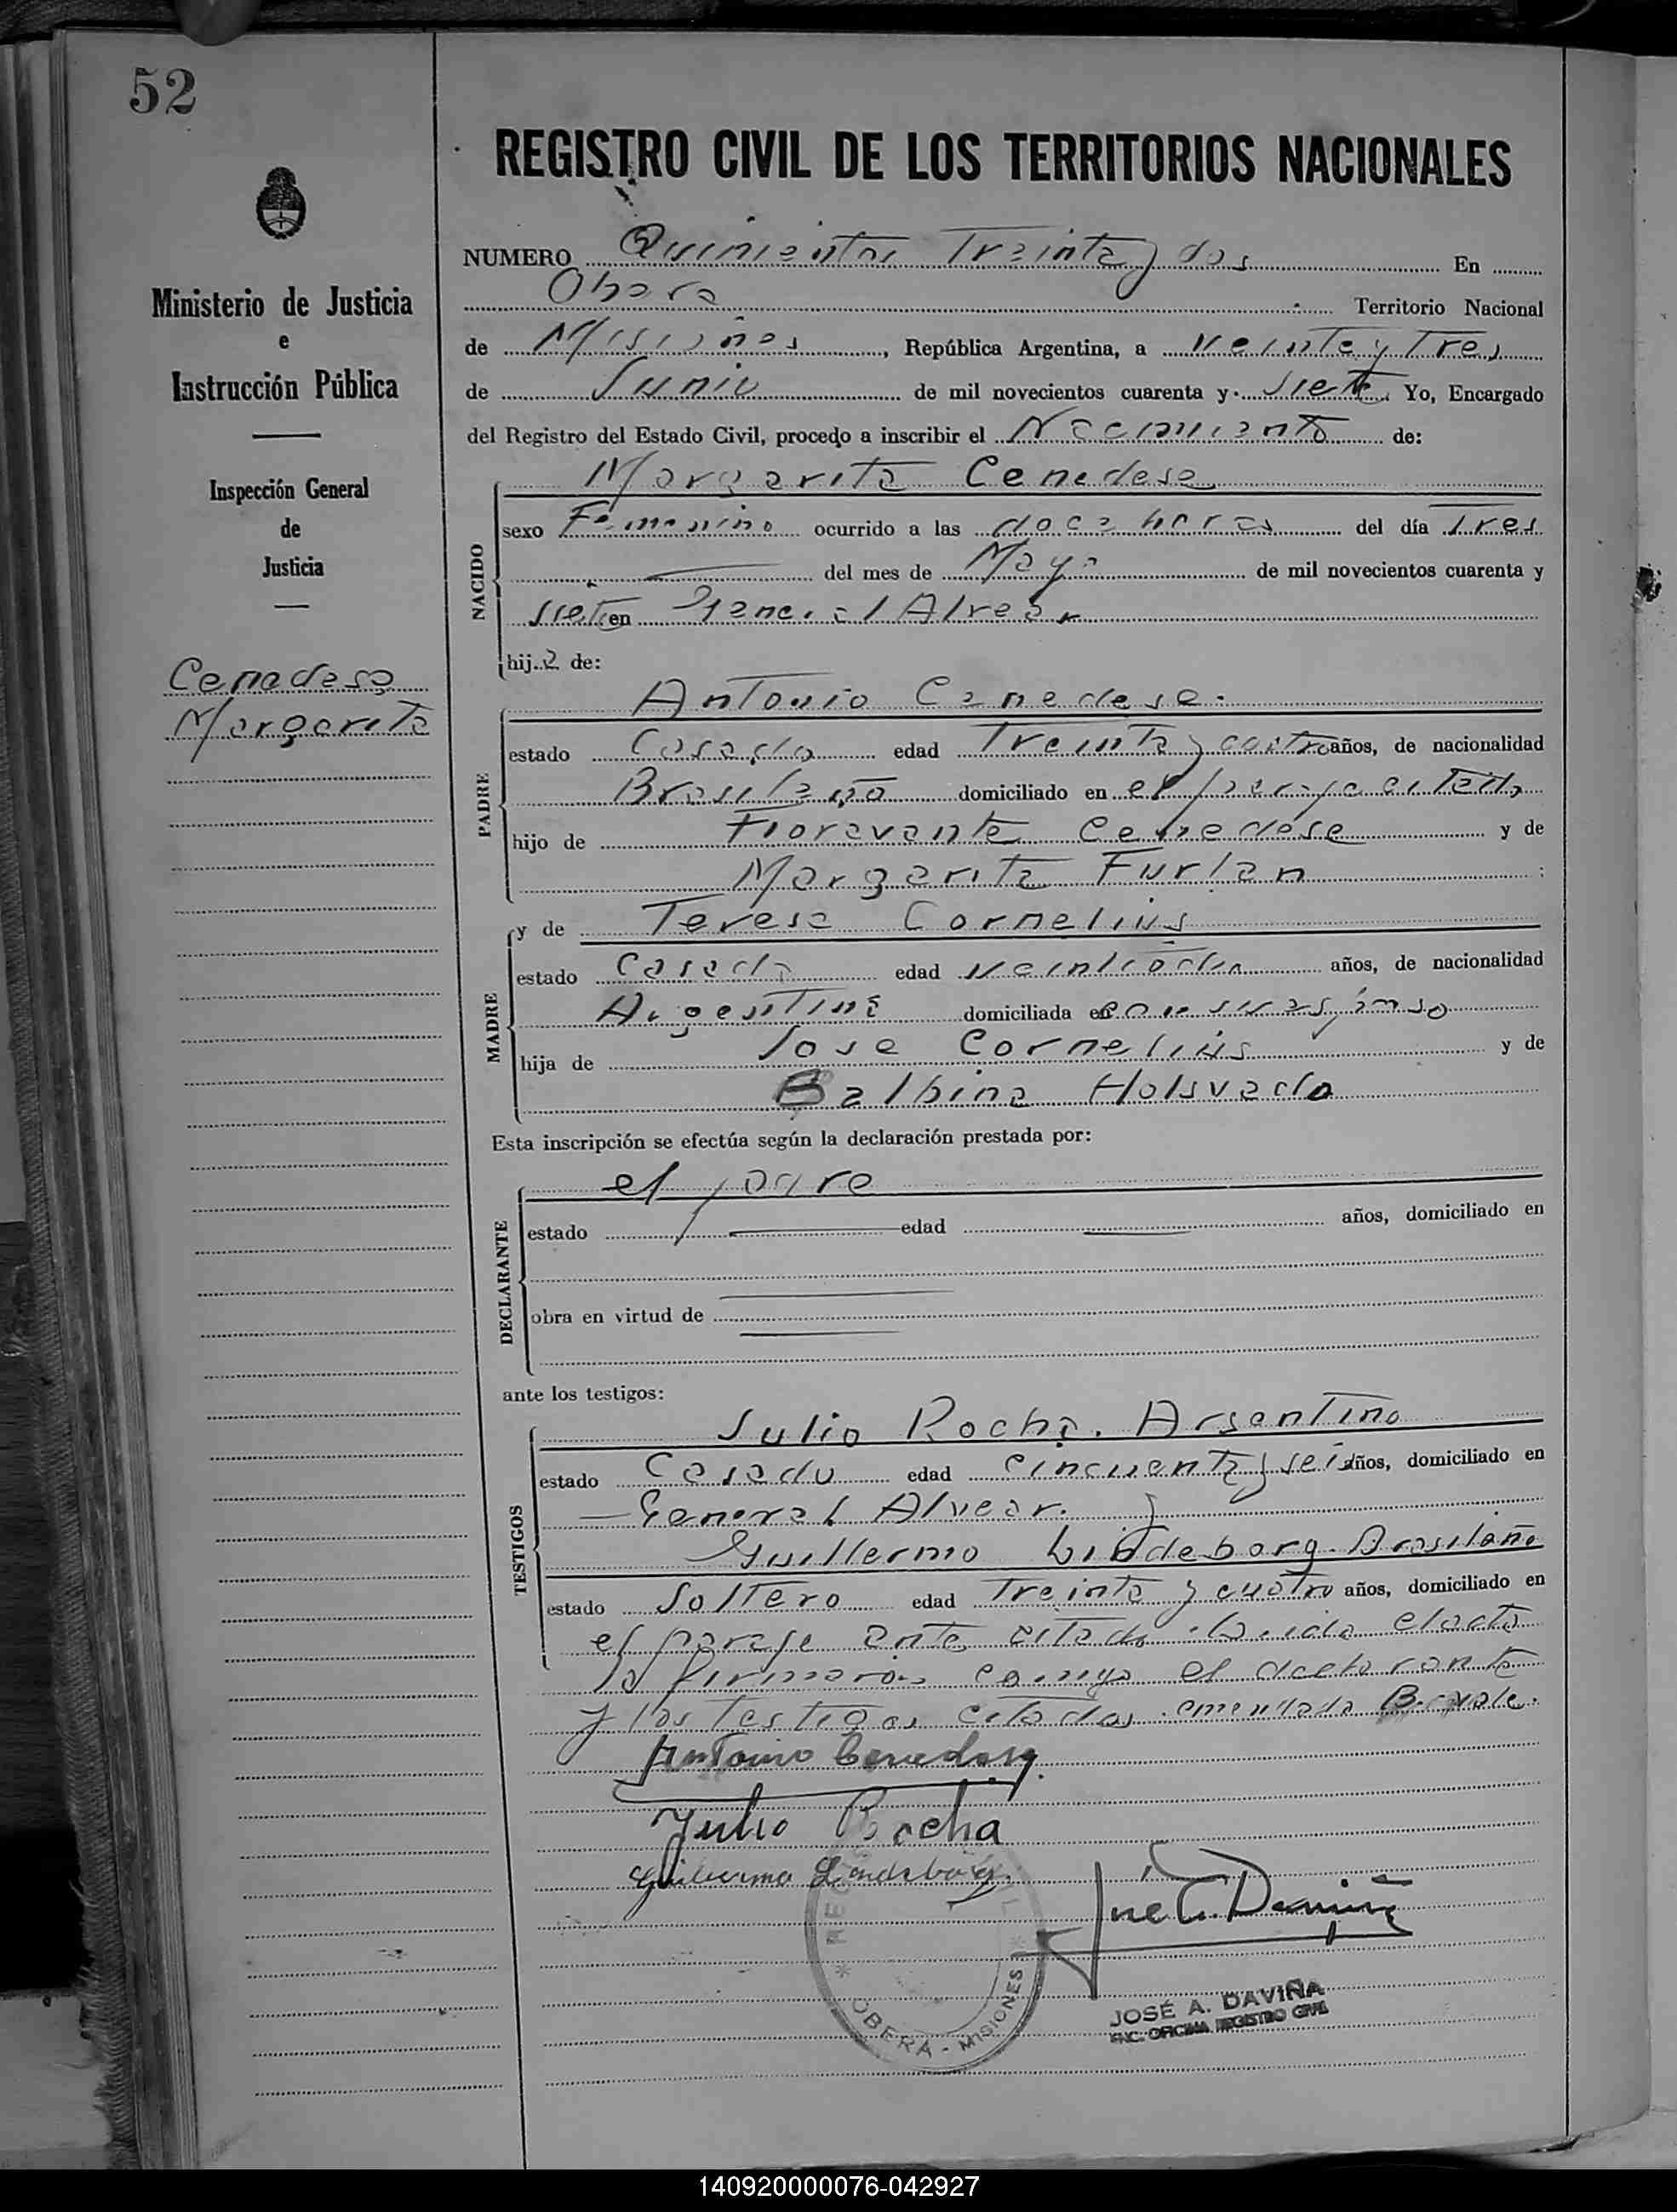 52
REGISTRO CIVIL DE LOS TERRITORIOS NACIONALES
Ministerio de Justicia
e
Instrucción Pública
Inspección General
de
Justicia
Cenedese
Margarita
NUMERO Quinientos Treinta y dos En
Obera Territorio Nacional
de Misiones, República Argentina, a veinte y Tres
de Junio de mil novecientos cuarenta y siete Yo, Encargado
del Registro del Estado Civil, procedo a inscribir el Nacimiento de:
NACIDO
Margarita Cenedese
sexo Femenino ocurrido a las doce horas del día Tres
del mes de Mayo de mil novecientos cuarenta y
siete en General Alvear
hija de:
PADRE
Antonio Cenedese.
estado Casado edad Treinta y cuatro años, de nacionalidad
Brasileño domiciliado en el paraje citado
hijo de Fioravante Cenedese y de
Margarita Furlan ;
MADRE
y de Teresa Cornelius
estado Casada edad veintiocho años, de nacionalidad
Argentina domiciliada en con su esposo
hija de Jose Cornelius y de
Balbina Holsvado
Esta inscripción se efectúa según la declaración prestada por:
DECLARANTE
el padre
estado edad años, domiciliado en
obra en virtud de
ante los testigos:
TESTIGOS
Julio Rocha. Argentino
estado Casado edad cincuenta y seis años, domiciliado en
General Alvear. y
Guillermo Lindeborg. Brasileño
estado Soltero edad Treinta y cuatro años, domiciliado en
el paraje ante citado. Leida el acta
la firmaron conmigo el declarante
y los testigos citados. emendado B. vale.
Antonio Cenedese
Julio Rocha
Guilherme Lindeborg
OBERA - MISIONES
JOSÉ A. DAVIÑA
ENC. OFICINA REGISTRO CIVIL
140920000076-042927